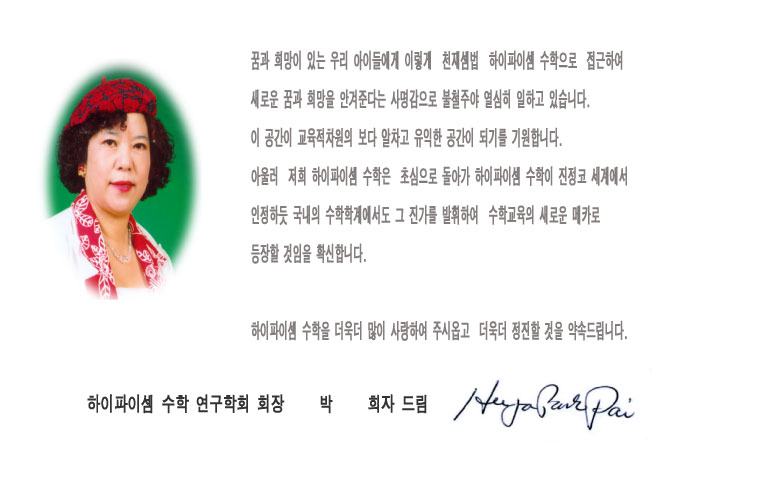 꿈과 희망이 있는 우리 아이들에게 이렇게 천재셈법 하이파이셈 수학으로 접근하여
새로운 꿈과 희망을 안겨준다는 사명감으로 불철주야 열심히 일하고 있습니다.
이 공간이 교육적차원의 보다 알차고 유익한 공간이 되기를 기원합니다.
아울러 저희 하이파이셈 수학은 초심으로 돌아가 하이파이셈 수학이 진정코 세계에서
인정하듯 국내의 수학학계에서도 그 진가를 발휘하여 수학교육의 새로운 메카로
등장할 것임을 확신합니다.
하이파이셈 수학을 더욱더 많이 사랑하여 주시옵고 더욱더 정진할 것을 약속드립니다.
하이파이셈 수학 연구학회 회장 박 희자 드림